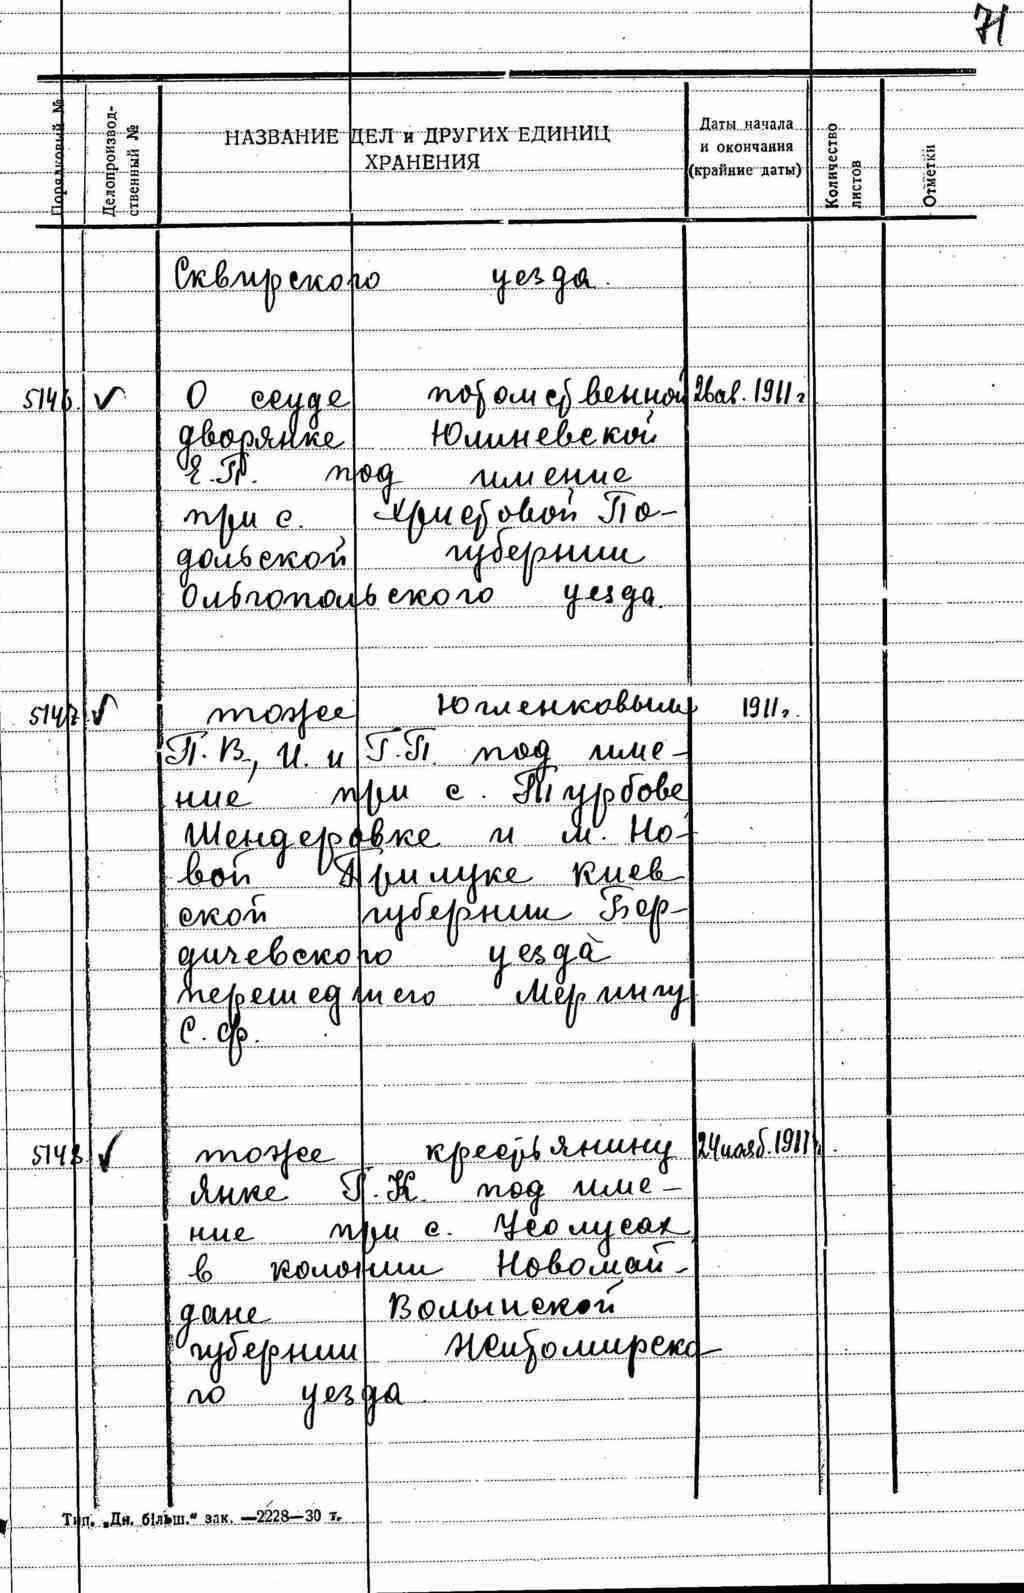 71
Порядковый №
Делопроизвод-
ственный №
НАЗВАНИЕ ДЕЛ и ДРУГИХ ЕДИНИЦ
ХРАНЕНИЯ
Даты начала
и окончания
(крайние даты)
Количество
листов
Отметки
Сквирского уезда.
5146. О ссуде потомственной 2 ав. 1911 г
дворянке Юлиневской
Е.П. под имение
при с. Христовой По-
дольской губернии
Ольгопольского уезда.
5147 тоже Югленковым 1911 г.
П.В., И. и Г.П. под име-
ние при с. Турбове
Шендеровке и м. Но-
вой Прилуке Киев
ской губернии Бер-
дичевского уезда
перешедшего Мерингу
С. Ф.
5148 тоже крестьянину 24 нояб. 1911 г.
Янке Г.К. под име-
ние при с. Усолусах
в колонии Новомай-
дане Волынской
губернии Житомирско
го уезда.
Тип. „Дн. більш." зак. —2228—30 т.